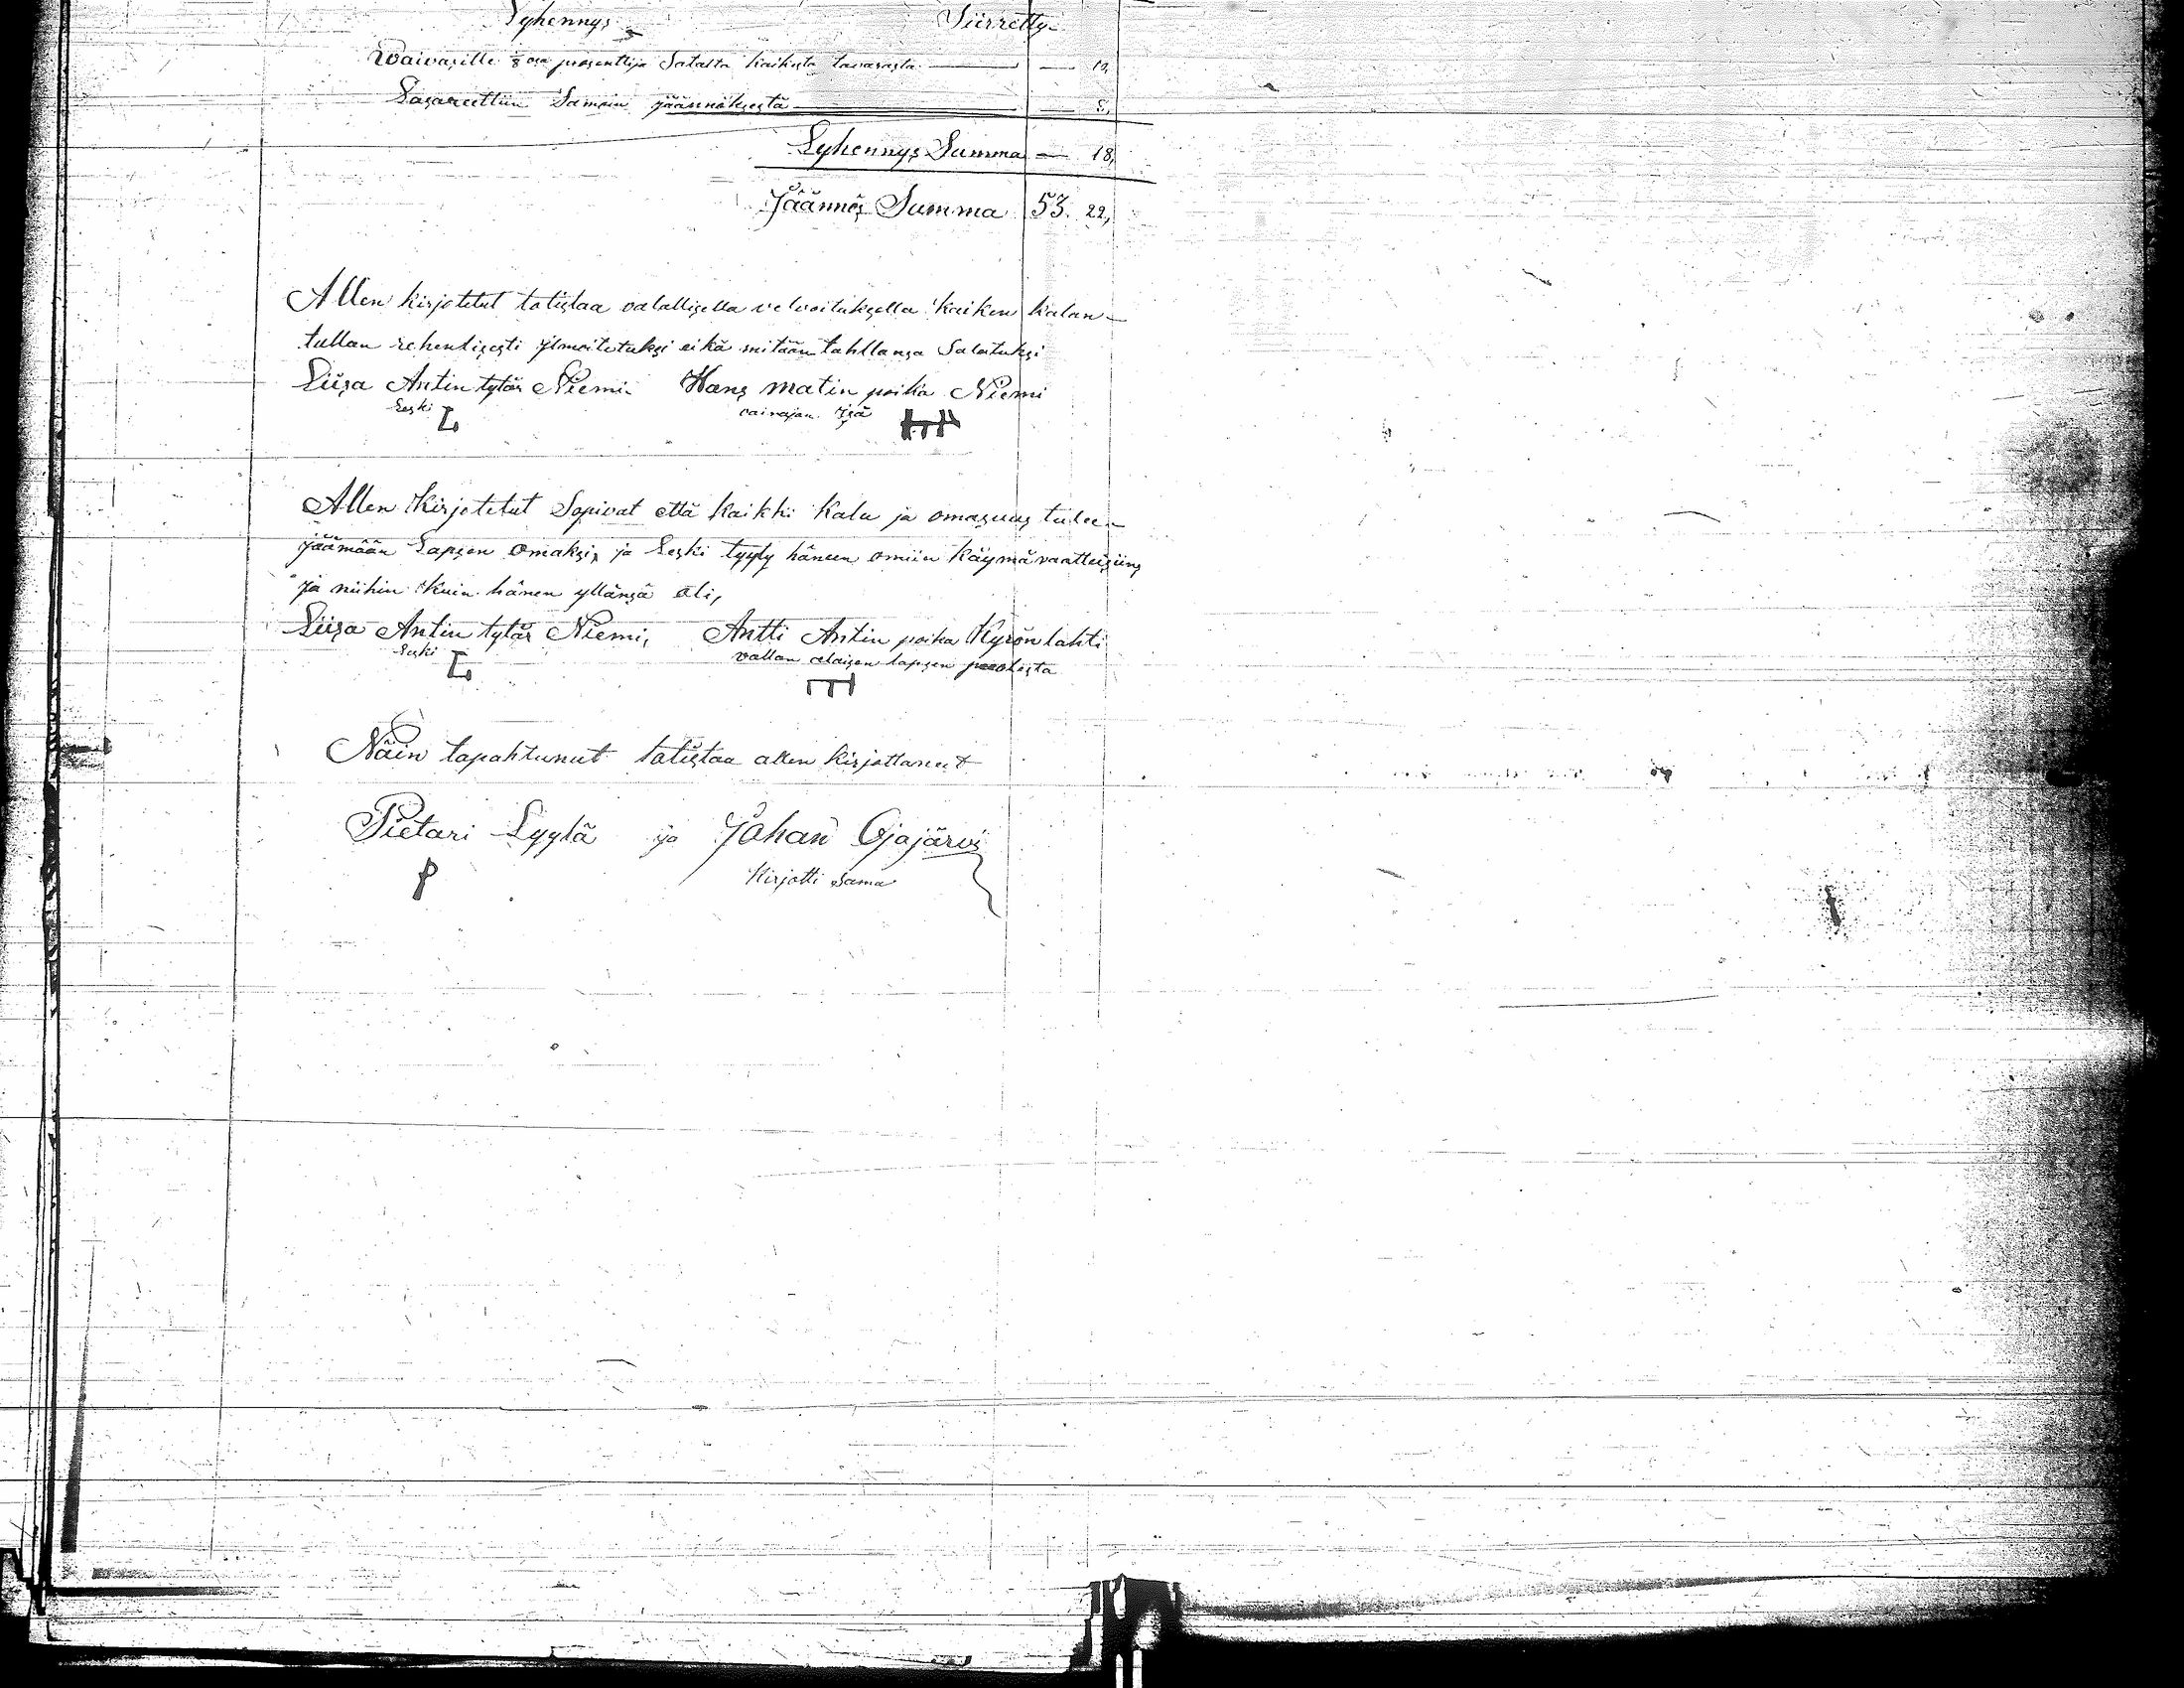 Lyhennys Siirretty
Waivasille 1/8 osa prosenttija Satalta kaikesta tavarasta — — 10,
Lasareettiin Samoin jäännöksestä — — 8,
Lyhennys Summa — 18,
Jäännös Summa 53. 22,
Allen kirjotetut totistaa valallisella velvoituksella kaiken kalun-
tullan rehentisesti ilmoitetuksi eikä mitään tahllansa Salatuksi
Liisa Antin tytär Niemi. Hans Matin poika Niemi
Leski L vainajan Isä
Allen Kirjotetut Sopivat että kaikki Kalu ja omasuus tulee-
jäämään Lapsen Omaksi, ja Leski tyyty häneen omiin käymävaatteisiins
ja niihin kuin hänen yllänsä oli,
Liisa Antin tytär Niemi, Antti Antin poika Kyrönlahti
Leski L vallan alaisen lapsen puolesta
Näin tapahtunut totistaa allen kirjottaneet
Pietari Lyylä ja Johan Ojajärvi
P Kirjotti Sama